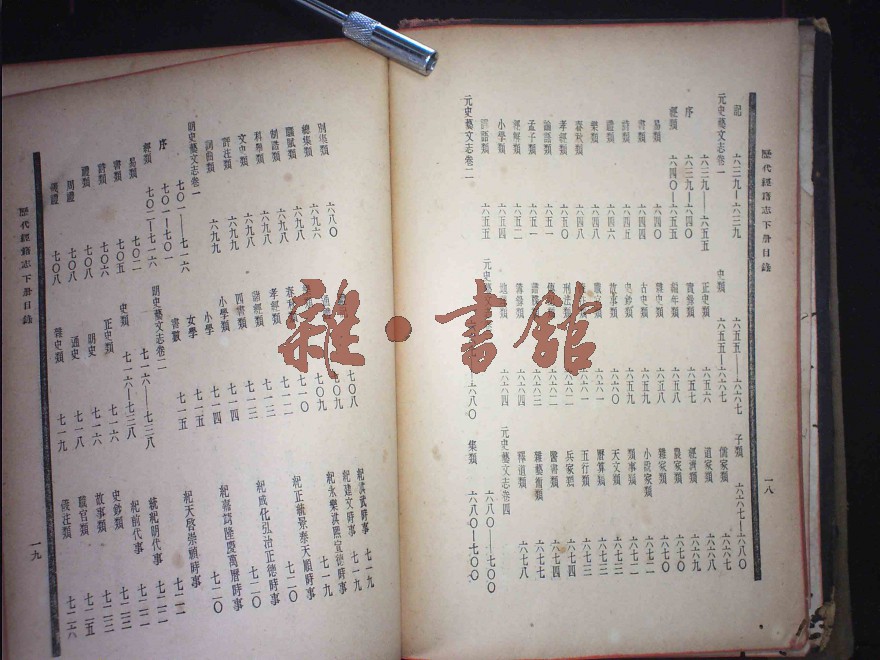 歷代經籍志下冊目錄
一八
記 六三九—六三九
元史藝文志卷一 六三九—六五五
序 六三九—六四〇
經類 六四〇—六五五
易類 六四〇
書類 六四四
詩類 六四四
禮類 六四五
樂類 六四八
春秋類 六四八
孝經類 六五〇
論語類 六五一
孟子類 六五一
經解類 六五二
小學類 六五四
譯語類 六五五
元史藝文志卷二
史類 六五五—六六七
正史類 六五六
實錄類 六五七
編年類 六五八
雜史類 六五八
古史類 六五九
史鈔類 六五九
故事類 六六〇
職 六六一
六六一
刑法類 六六二
六六二
譜牒 六六三
簿錄類 六六四
地 類 六六四
元史藝 六八〇
子類 六六七—六八〇
儒家類 六六七
道家類 六六八
經濟類 六六九
農家類 六七〇
雜家類 六七〇
小說家類 六七一
類事類 六七二
天文類 六七二
曆算類 六七三
五行類 六七三
兵家類 六七四
醫書類 六七五
雜藝術類 六七七
釋道類 六七八
元史藝文志卷四 六八〇—七〇〇
集類 六八〇—七〇〇
別集類 六八〇
總集類 六九六
騷賦類 六九八
制誥類 六九八
科舉類 六九八
文史類 六九八
評注類 六九九
詞曲類 六九九
明史藝文志卷一 七〇一—七一六
序 七〇一—七〇一
經類 七〇二—七一六
易類 七〇二
書類 七〇五
詩類 七〇六
禮類 七〇八
周禮 七〇八
儀禮 七〇八
七〇八
七〇九
七〇九
春秋 七一〇
孝經類 七一二
諸經類 七一三
四書類 七一三
小學類 七一四
小學 七一四
女學 七一五
書數 七一五
明史藝文志卷二 七一六—七三八
史類 七一六—七三八
正史類 七一六
明史 七一六
通史 七一八
雜史類 七一九
紀洪武時事 七一九
紀建文時事 七一九
紀永樂洪熙宣德時事 七一九
紀正統景泰天順時事 七二〇
紀成化弘治正德時事 七二〇
紀嘉靖隆慶萬曆時事 七二〇
紀天啓崇禎時事 七二一
統紀明代事 七二二
紀前代事 七二二
史鈔類 七二三
故事類 七二三
職官類 七二五
儀注類 七二六
歷代經籍志下冊目錄
一九
雜·書館